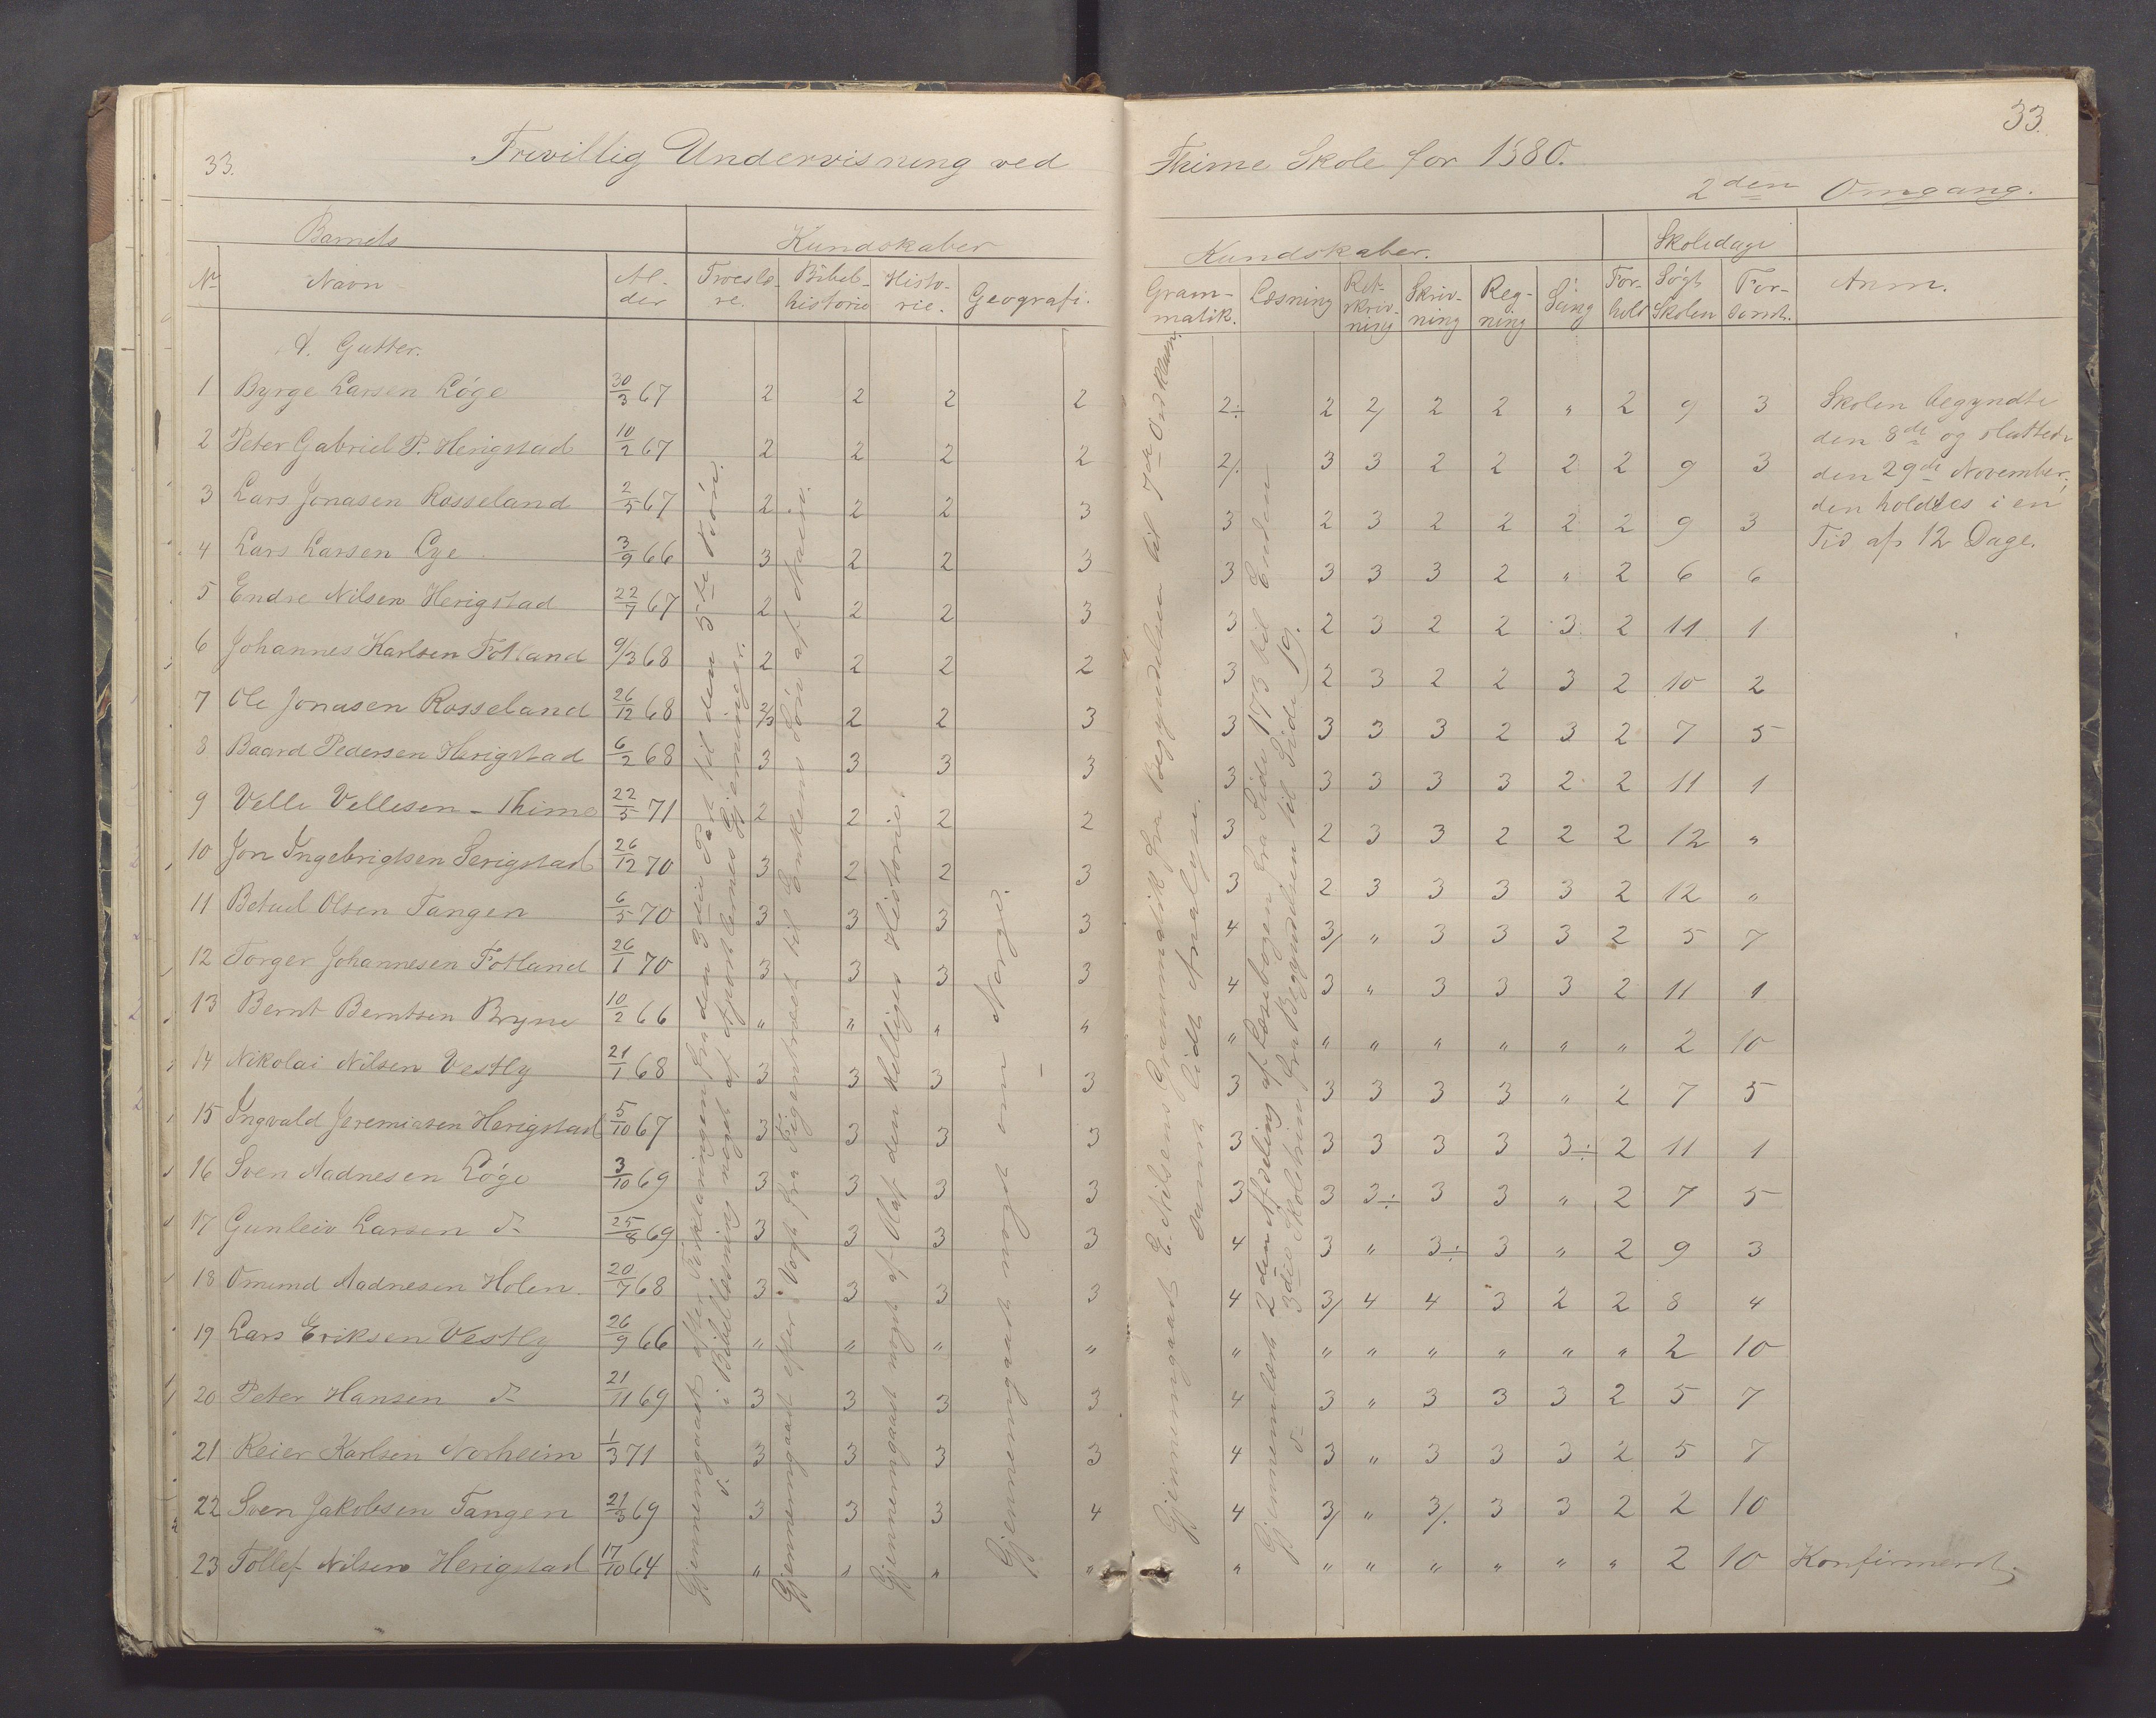 33.
Frivillig Undervisning ved Thime Skole for 1880.
33.
2den Omgang.
Barnets Kundskaber Kundskaber. Skoledage
No Navn Al-der Troeslæ-re. Bibel-historie Histo-rie. Geografi. Gram-matik. Læsning Ret-skriv-ning Skriv-ning Reg-ning Sang For-hold Søgt Skolen For-sømt. Anm.
A. Gutter.
1 Byrge Larsen Løge 30/3 67 2 2 2 2 2÷ 2 2/ 2 2 " 2 9 3
2 Peter Gabriel P. Herigstad 10/2 67 2 2 2 2 2/. 3 3 2 2 2 2 9 3
3 Lars Jonasen Rosseland 2/5 67 2 2 2 3 3 2 3 2 2 2 2 9 3
4 Lars Larsen Lye 3/9 66 3 2 2 3 3 3 3 3 2 " 2 6 6
5 Endre Nilsen Herigstad 22/7 67 2 2 2 3 3 2 3 2 2 3 2 11 1
6 Johannes Karlsen Fotland 9/3 68 2 2 2 2 3 2 3 2 2 3 2 10 2
7 Ole Jonasen Rosseland 26/12 68 2/3 2 2 3 3 3 3 3 2 3 2 7 5
8 Baard Pedersen Herigstad 6/2 68 3 3 3 3 3 3 3 3 3 2 2 11 1
9 Velle Vellesen - Thime 22/5 71 2 2 2 2 3 2 3 3 2 2 2 12 "
10 Jon Ingebrigtsen Serigstad 26/12 70 3 2 2 3 3 2 3 3 3 3 2 12 "
11 Betuel Olsen Tangen 6/5 70 3 3 3 3 4 3/ " 3 3 3 2 5 7
12 Torger Johannesen Fotland 26/1 70 3 3 3 3 4 3 " 3 3 3 2 11 1
13 Bernt Berntsen Bryne 10/2 66 " " " " " " " " " " " 2 10
14 Nikolai Nilsen Vestly 21/1 68 3 3 3 3 3 3 3 3 3 " 2 7 5
15 Ingvald Jeremiasen Herigstad 5/10 67 3 3 3 3 3 3 3 3 3 3÷ 2 11 1
16 Sven Aadnesen Løge 3/10 69 3 3 3 3 3 3 3÷ 3 3 " 2 7 5
17 Gunleiv Larsen do 25/8 69 3 3 3 3 4 3 " 3÷ 3 " 2 9 3
18 Omund Aadnesen Holen. 20/7 68 3 3 3 3 4 3/ 4 4 3 2 2 8 4
19 Lars Eriksen Vestly 26/9 66 " " " " " " " " " " " 2 10
20 Peter Hansen do 21/11 69 3 3 3 3 4 3 " 3 3 3 2 5 7
21 Reier Karlsen Norheim 1/3 71 3 3 3 3 4 3 " 3 3 3 2 5 7
22 Sven Jakobsen Tangen 21/3 69 3 3 3 4 4 3/ " 3/. 3 3 2 2 10
23 Tollef Nilsen Herigstad 17/10 64 " " " " " " " " " " " 2 10 Konfirmerdt
Gjennemgaaet efter Forklaringen fra den 3die Part til den 5te Bøn.
do. i Bibellæsning noget af Apostlernes Gjerninger.
Gjennemgaaet efter Vogt fra Figentræet til Enkens Søn af Nain.
Gjennemgaaet noget af Olaf den Helliges Historie.
Gjennemgaaet noget om Norge.
Gjennemgaaet E. Nilsens Grammatik fra Begyndelsen til 7de Ordklasse,
samt lidt Analyse.
Gjennemlæst 2den Afdeling af Læsebogen fra Side 173 til Enden
do 3die Skoletrin fra Begyndelsen til Side 19.
Skolen begyndte
den 8de og sluttede
den 29de November,
den holdtes i en
Tid af 12 Dage.